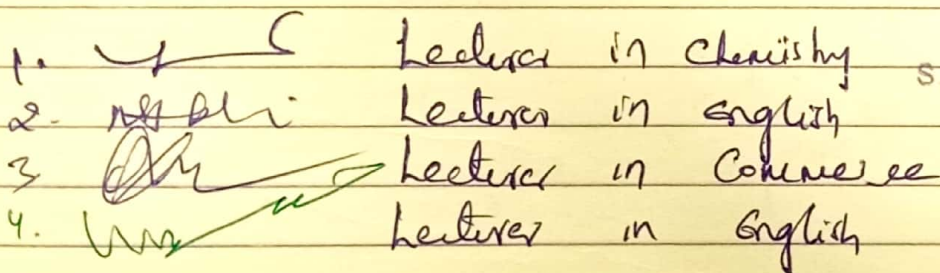 1. Lecturer in Chemistry
2. Lecturer in English
3 Lecturer in Commerce
4. Lecturer in English